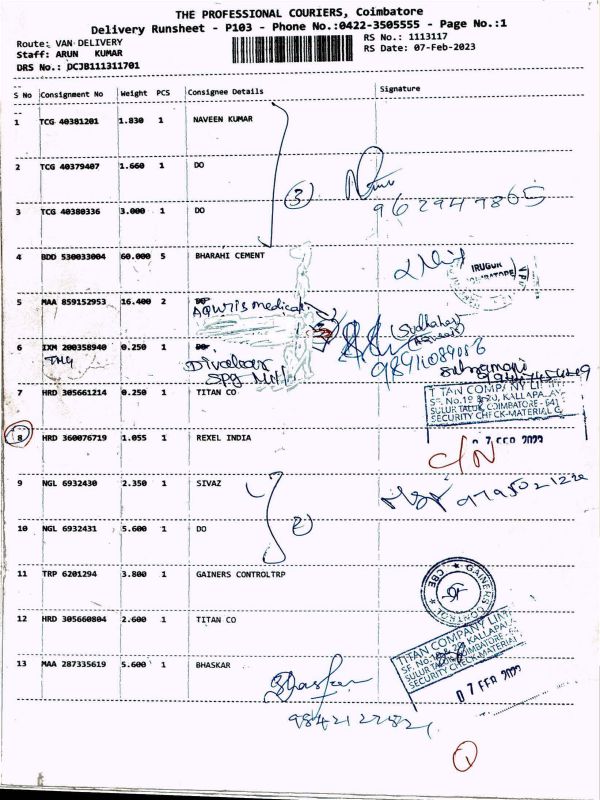 THE PROFESSIONAL COURIERS, Coimbatore
Delivery Runsheet - P103 - Phone No.:0422-3505555 - Page No.:1
Route: VAN DELIVERY
RS No.: 1113117
Staff: ARUN KUMAR
RS Date: 07-Feb-2023
DRS No.: DCJB111311701
S No Consignment No Weight PCS Consignee Details Signature
1 TCG 40381201 1.830 1 NAVEEN KUMAR
2 TCG 40379407 1.660 1 DO
3
9629479865
3 TCG 40380336 3.000 1 DO
4 BDD 530033004 60.000 5 BHARAHI CEMENT
IRUGUR
5 MAA 859152953 16.400 2 DO
medical
6 IXM 200358940 0.250 1 DO
Divakar
Spg Mill
7 HRD 305661214 0.250 1 TITAN CO
TITAN COMPANY LIMIT
SULUR TALUK, COIMBATORE - 641
SECURITY CHECK-MATERIAL
07 FEB 2023
8 HRD 360076719 1.055 1 REXEL INDIA
C/N
9 NGL 6932430 2.350 1 SIVAZ
9795021220
2
10 NGL 6932431 5.600 1 DO
11 TRP 6201294 3.800 1 GAINERS CONTROLTRP
GAINERS CONTROL
CBE
12 HRD 305660804 2.600 1 TITAN CO
TITAN COMPANY LIMIT
SULUR TALUK, COIMBATORE
SECURITY CHECK-MATERIAL
07 FEB 2023
13 MAA 287335619 5.600 1 BHASKAR
Bhaskar
1